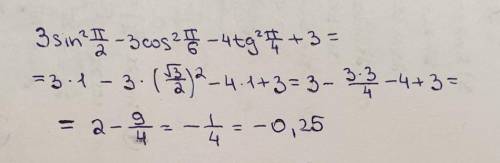 3sin²π/2 - 3cos²π/6 - 4tg²π/4 + 3 =
= 3 · 1 - 3 · (√3/2)² - 4 · 1 + 3 = 3 - 3·3/4 - 4 + 3 =
= 2 - 9/4 = - 1/4 = - 0,25